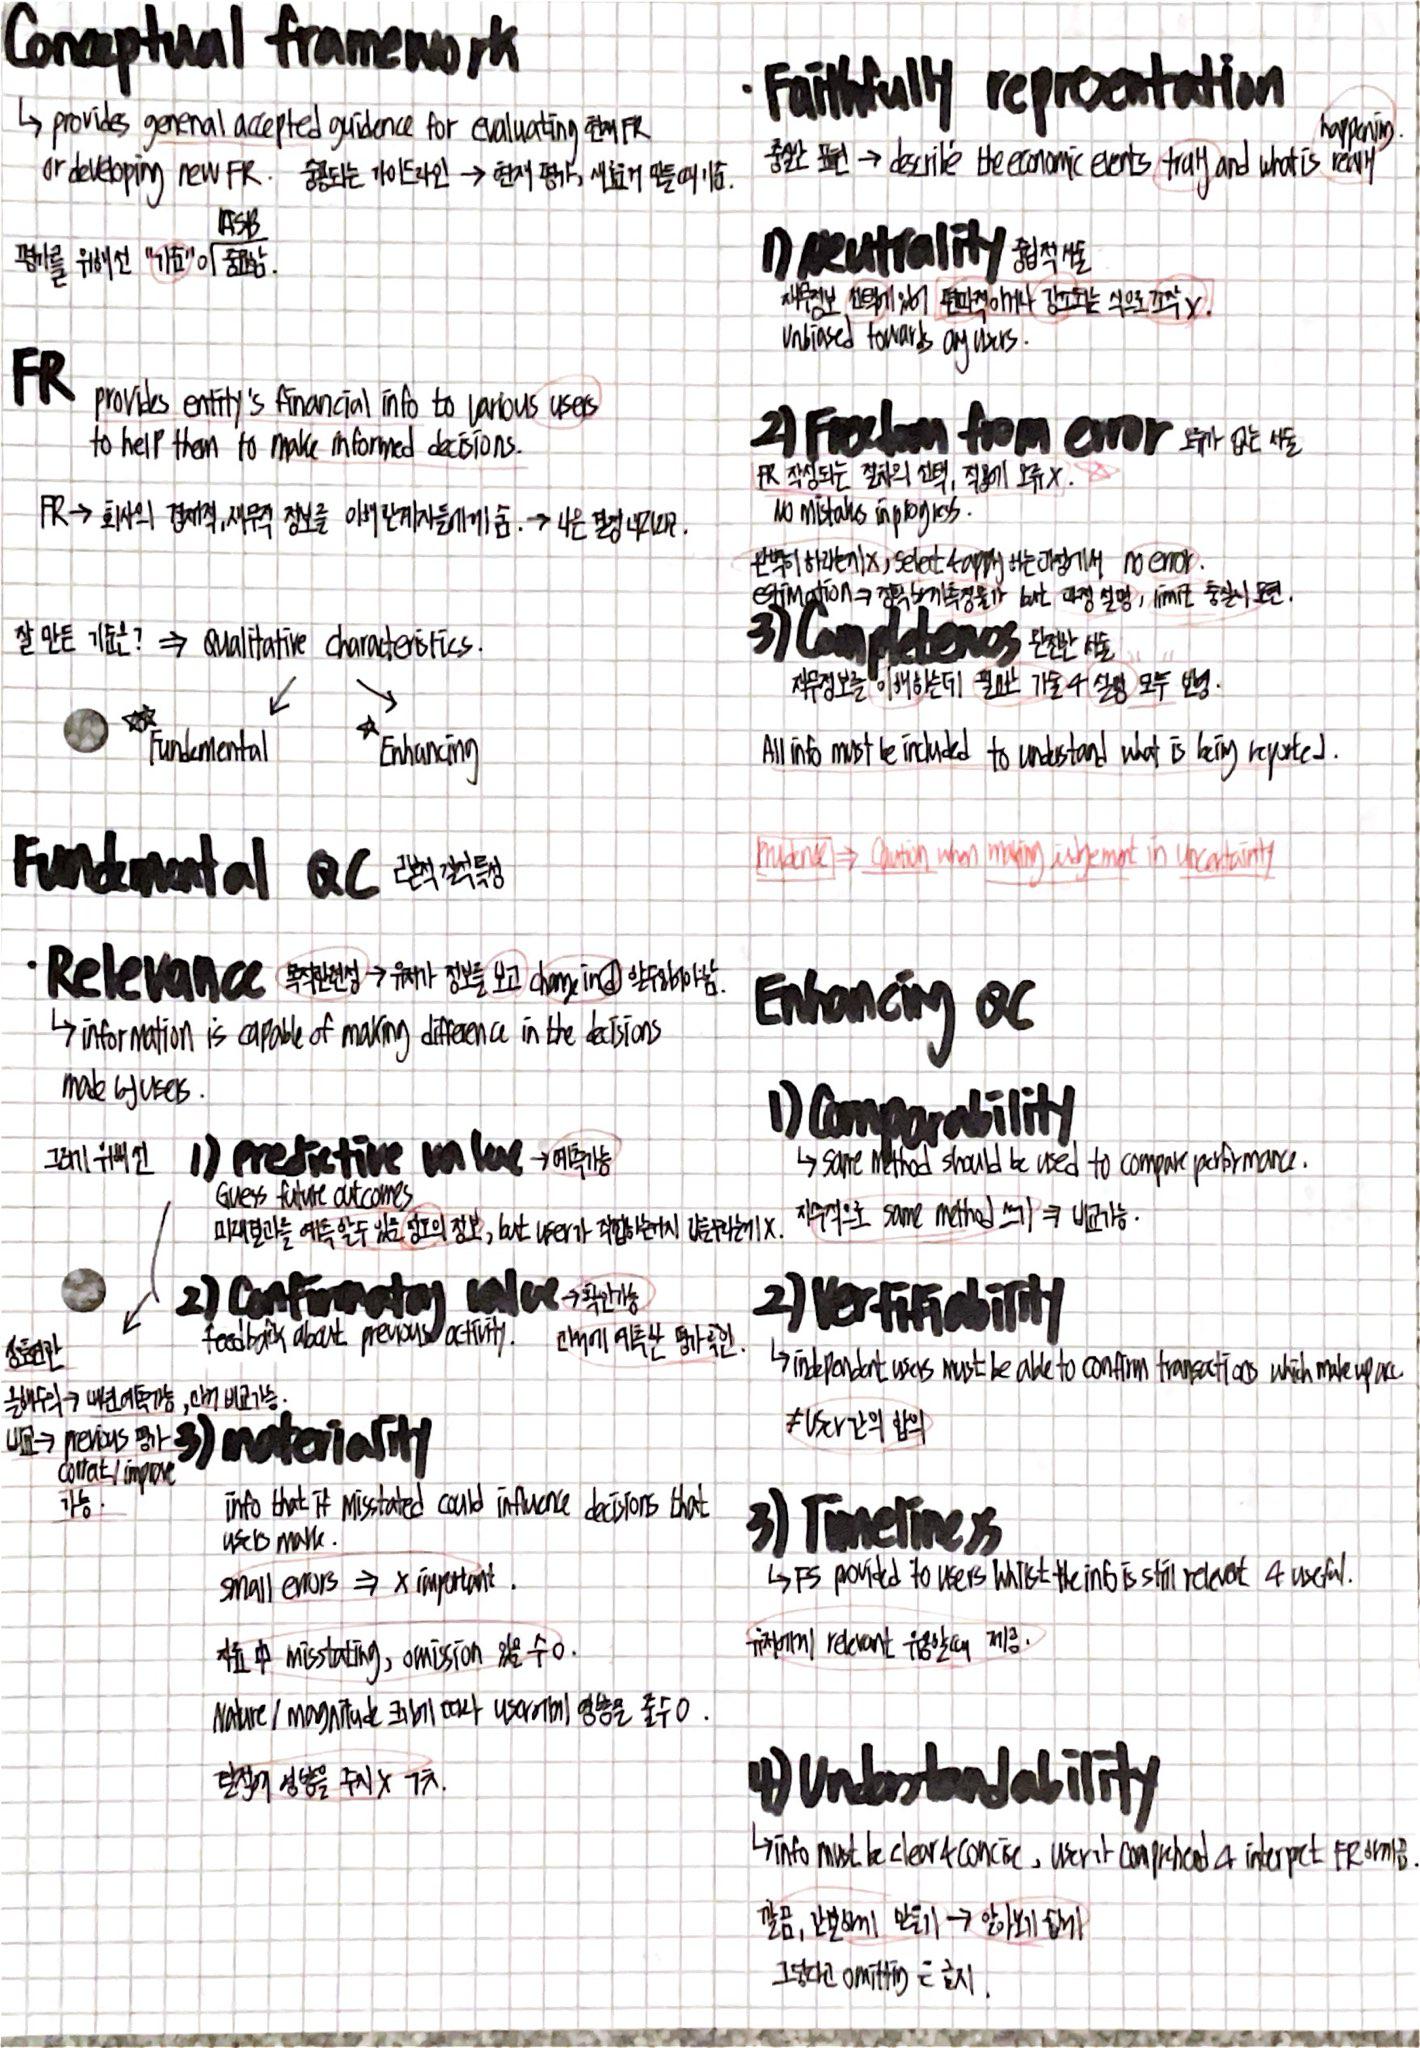 Conceptual framework
↳ provides general accepted guidence for evaluating 현재 FR
or developing new FR. 통용되는 가이드라인 → 현재 평가, 새로 만들때 기준.
IASB
평가를 위해선 "기준"이 중요함.
FR
provides entity's financial info to various users
to help them to make informed decisions.
FR → 회사의 경제적, 재무적 정보를 이해관계자들에게 줌. → 나은 결정 내리라고.
잘 만든 기준은? ⇒ Qualitative characteristics.
☆☆ Fundemental
☆ Enhancing
Fundemental QC 근본적 질적특성
· Relevance 목적관련성 → 유저가 정보를 보고 change in 할수있어야함.
↳ information is capable of making difference in the decisions
made by users.
그러기 위해선
1) predictive value → 예측가능
Guess future outcomes
미래결과를 예측할수 있을 정도의 정보, but user가 직접하는거지 x.
2) Confirmatory value → 확인가능
feedback about previous activity. 과거에 예측한 평가 확인.
상호연관
올해수익 → 내년예측가능, 과거 비교가능.
비교 → previous 평가
correct/improve
가능.
3) materiality
info that if misstated could influence decisions that
users make.
small errors ⇒ x important.
자료 中 misstating, omission 있을 수 O.
Nature / magnitude 크기에 따라 user에게 영향을 줄수 O.
결정에 영향을 주지 X
· Faithfully representation
happening.
충실한 표현 → describe the economic events truly and what is really
1) Neutrality 중립적 서술
재무정보 선택에 있어 편파적이거나 강조되는 식으로 조작 x.
unbiased towards any users.
2) Freedom from error 오류가 없는 서술
FR 작성되는 절차의 선택, 적용에 오류 x. ☆
No mistakes in progress.
완벽히 하라는게 x, select & apply 하는과정에서 no error.
estimation → 정확 but 과정 설명, limit 충실시 표현.
3) Completenes 완전한 서술
재무정보를 이해하는데 필요한 기술 & 설명 모두 반영.
All info must be included to understand what is being reported.
Prudence ⇒ Caution when making judgement in uncertainty
Enhancing QC
1) Comparability
↳ same method should be used to compare performance.
지속적으로 same method 쓰기 ⇒ 비교가능.
2) Verfifiability
↳ independent users must be able to confirm transactions which make up acc
≠ User 간의 합의
3) Timeliness
↳ FS provided to users whilst the info is still relevent & useful.
유저에게 relevant 유용할때 제공.
4) Understandability
↳ info must be clear & concise, user가 comprehend & interpret FR 하게끔.
깔끔, 간결하게 만들기 → 알아보기 쉽게
그렇다고 omitting 은 금지.